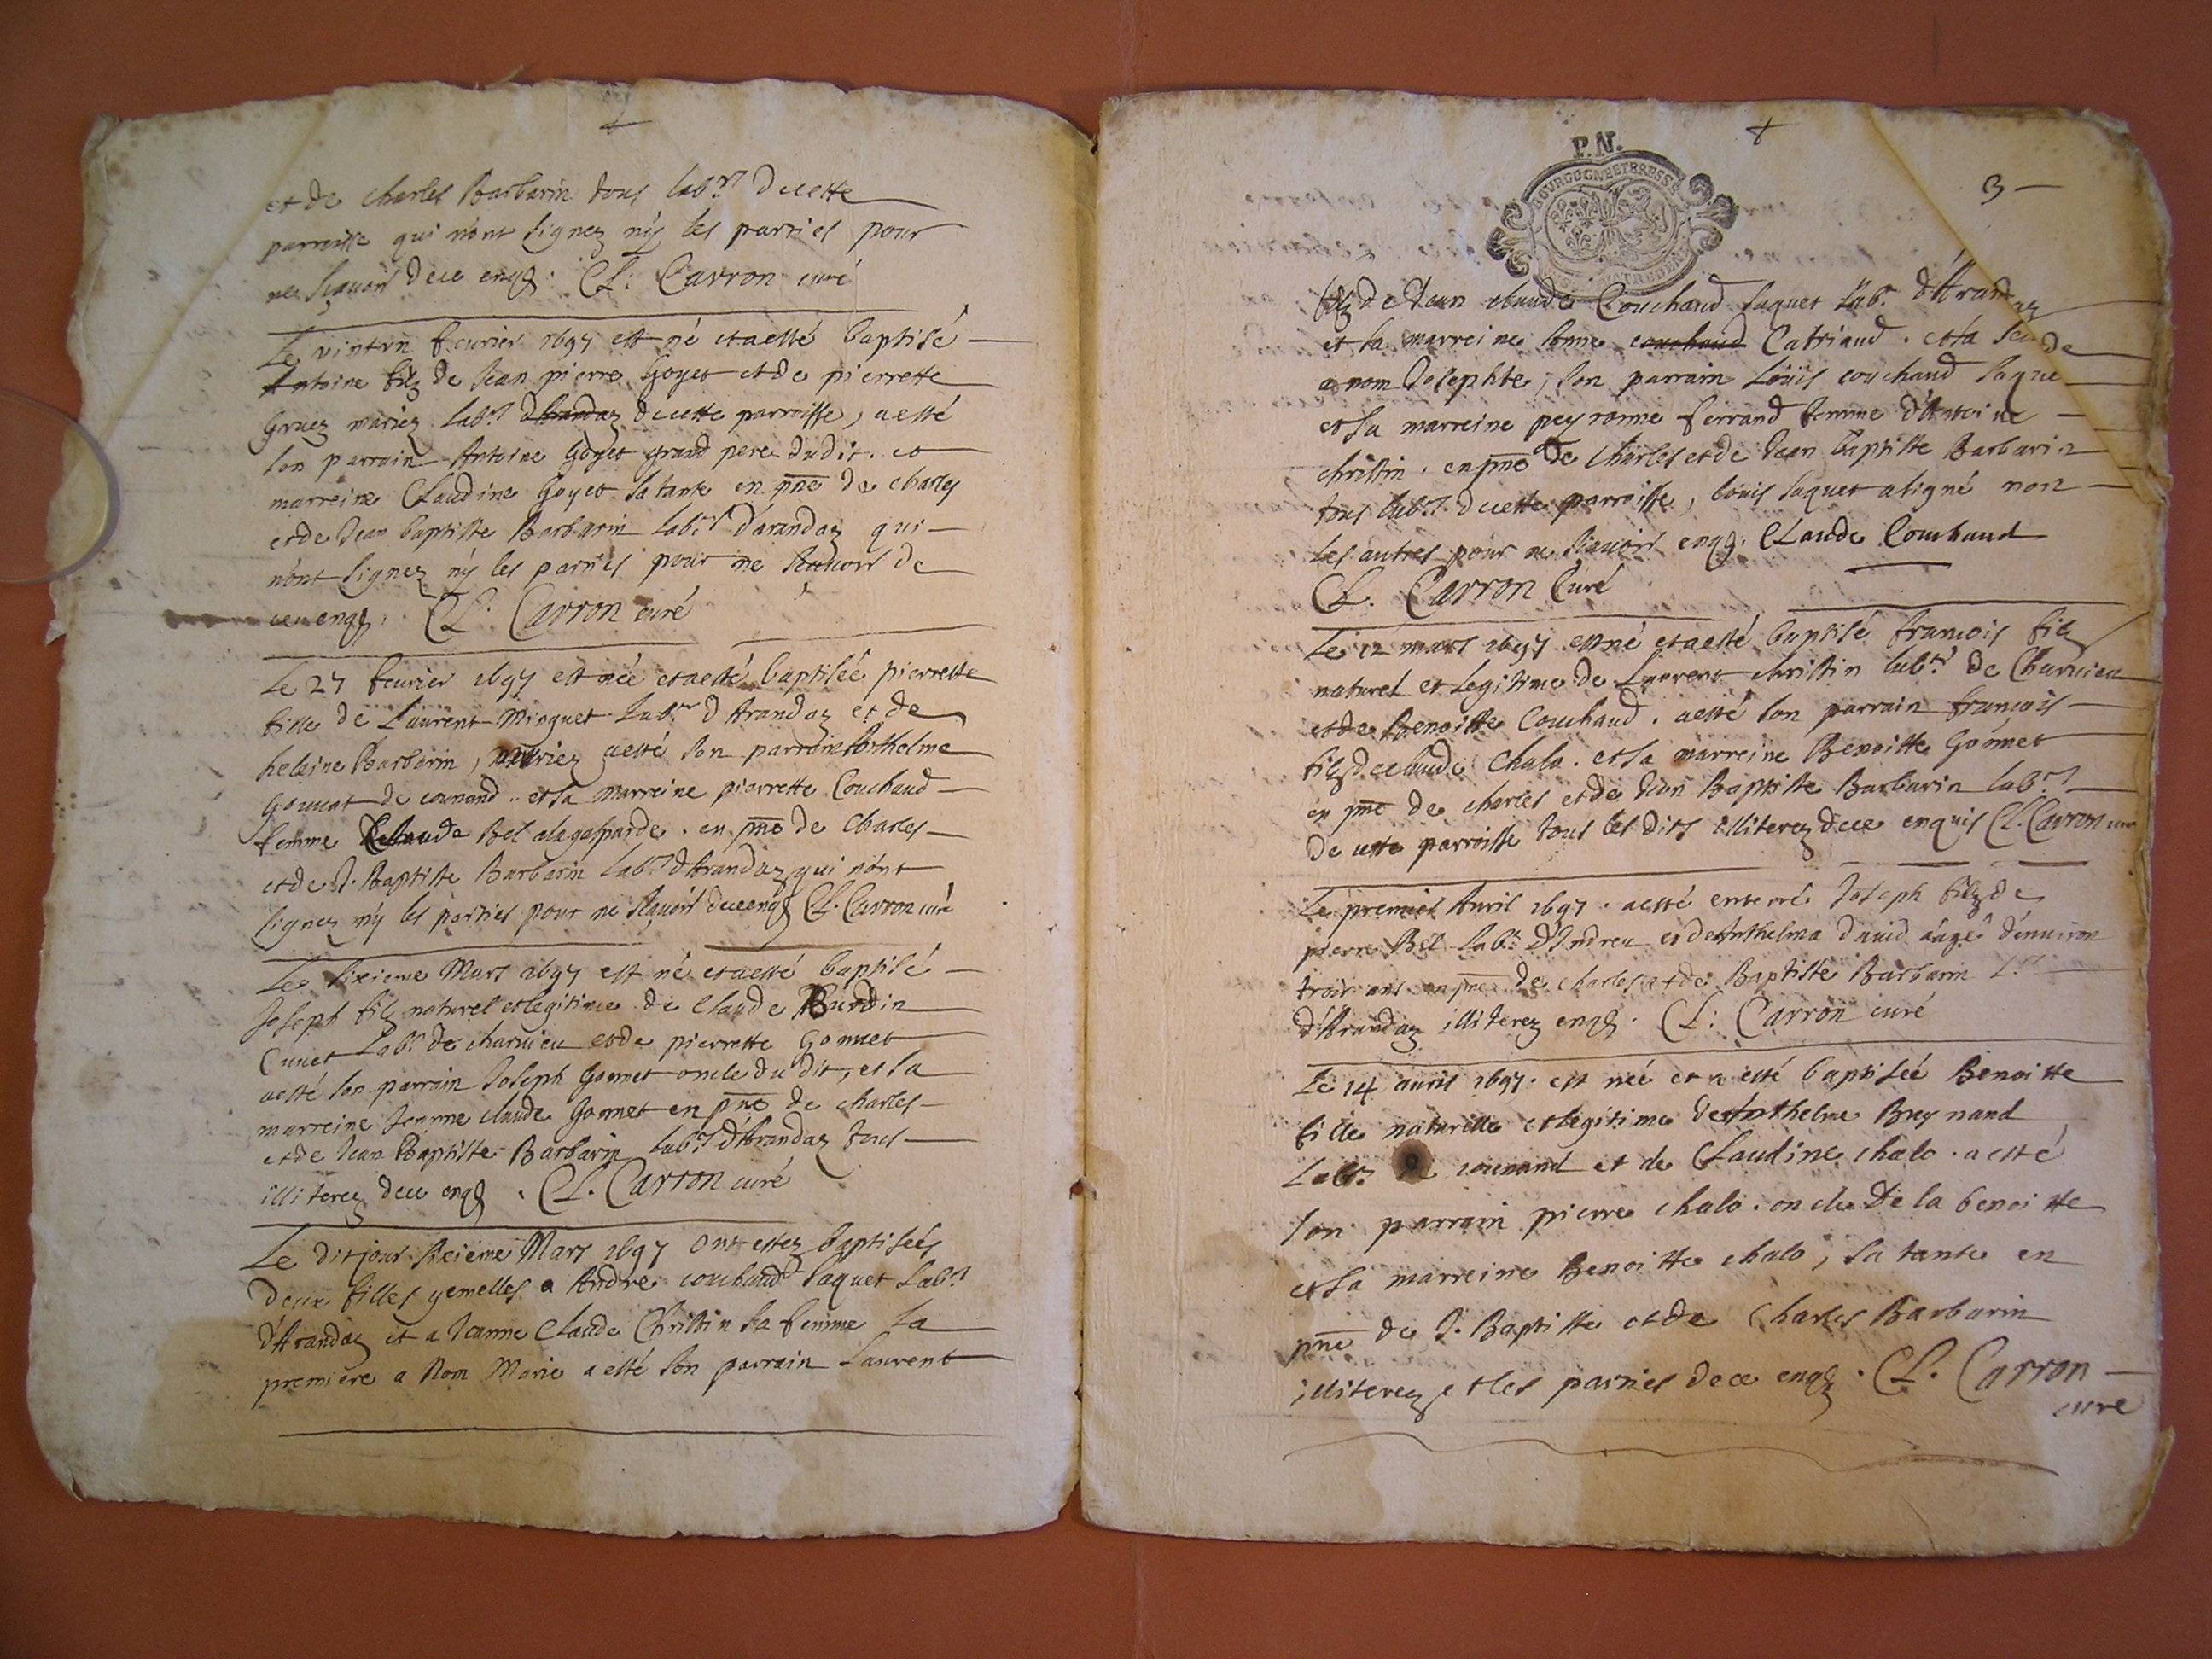 et de Charles Barbarin tous labrs decette
parroisse qui n'ont signez ny les parties pour
ne sçavoir dece enqs. Cl. Carron curé
Le vintvn feurier 1697 est né et a esté baptisé
Antoine filz de Jean pierre Goyet et de pierrette
Gruez mariez labrs decette parroisse, a esté
son parrain Antoine Goyet grand pere dudit. et
marreine Claudine Goyet sa tante en pnce de charles
et de Jean baptiste Barbarin labrs d'arandaz qui
n'ont signez ny les parties pour ne sçavoir de
ceu enqs. Cl. Carron curé
Le 27 feurier 1697 est née et a esté baptisée pierrette
fille de Laurent Mioguet labr d'Arandaz et de
heleine Barbarin, mariez a esté son parrain Anthelme
Gounat de counand. et sa marreine pierrette Couchaud
femme de Claude Bel alagasparde. en pnce de Charles
et de J. Baptiste Barbarin labrs d'Arandaz qui n'ont
signez ny les parties pour ne sçavoir dece enqs Cl. Carron curé
Le sixieme Mars 1697 est né et a esté baptisé
Joseph filz naturel et legitime de Claude Burdin
Cunet labr de charuieu et de pierrette Gonnet
a esté son parrain Joseph Gonnet oncle du dit, et sa
marreine Jeanne claude Gonnet en pnce de charles
et de Jean Baptiste Barbarin labrs d'Arandaz tous
illiterez dece enqs. Cl. Carron curé
Le dit jour sixieme Mars 1697 ont estez baptisées
deux filles gemelles a André couchaud saquet labr
d'Arandaz et a Jeanne Claude Christin sa femme la
premiere a Nom Marie a esté son parrain Laurent
P.N.
BOURGOGNE ET BRESSE
3
filz de Jean claude Couchaud saquet labr d'Arandaz
et sa marreine Anne couchaud Catriaud. et la seconde
a nom Josephte, son parrain Loüis couchaud saquet
et sa marreine peyronne ferrand femme d'Antoine
christin. en pnce de Charles et de Jean baptiste Barbarin
tous labrs decette parroisse, louis saquet a signé non
les autres pour ne sçauoir enqs. Claude Couchaud
Cl. Carron Curé
Le 12 mars 1697 est né et a esté baptisé francois filz
naturel et legitime de Laurent christin labr de Charuieu
et de Benoitte Couchaud. a esté son parrain francois
filz de claude Chalo. et sa marreine Benoitte Gonnet
en pnce de charles et de Jean Baptiste Barbarin labrs
de cette parroisse tous les dits illiterez dece enquis Cl. Carron curé
Le premier Auril 1697. a esté enterré Joseph filz de
pierre Bel labr d'Indrieu et de Anthelma Dauid aagé d'enuiron
trois ans en pnce de charles et de Baptiste Barbarin Lrs
d'Arandaz illiterez enqs. Cl. Carron curé
Le 14 auril 1697. est née et a esté baptisée Benoitte
fille naturelle et legitime de Anthelme Breynand
labr de counand et de Claudine chalo. a esté
son parrain pierre chalo. oncle de la benoitte
et sa marreine Benoitte chalo, sa tante en
pnce de J. Baptiste et de Charles Barbarin
illiterez et les parties dece enqs. Cl. Carron
curé